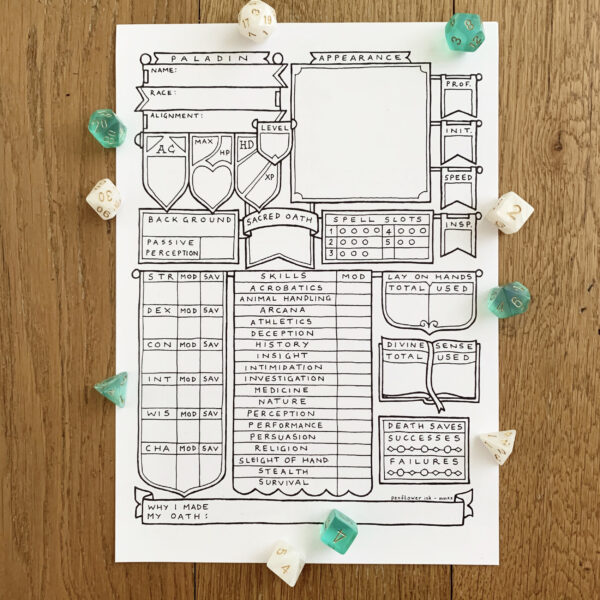 PALADIN
NAME:
RACE:
ALIGNMENT:
APPEARANCE
PROF.
INIT.
SPEED
INSP.
AC
MAX HP
HD
LEVEL
XP
BACKGROUND
PASSIVE
PERCEPTION
SACRED OATH
SPELL SLOTS
1 4
2 5
3
STR MOD SAV
DEX MOD SAV
CON MOD SAV
INT MOD SAV
WIS MOD SAV
CHA MOD SAV
SKILLS MOD
ACROBATICS
ANIMAL HANDLING
ARCANA
ATHLETICS
DECEPTION
HISTORY
INSIGHT
INTIMIDATION
INVESTIGATION
MEDICINE
NATURE
PERCEPTION
PERFORMANCE
PERSUASION
RELIGION
SLEIGHT OF HAND
STEALTH
SURVIVAL
LAY ON HANDS
TOTAL USED
DIVINE SENSE
TOTAL USED
DEATH SAVES
SUCCESSES
FAILURES
penflower ink
WHY I MADE
MY OATH:
19
17
3
12
20
30
2
6
4
5
4